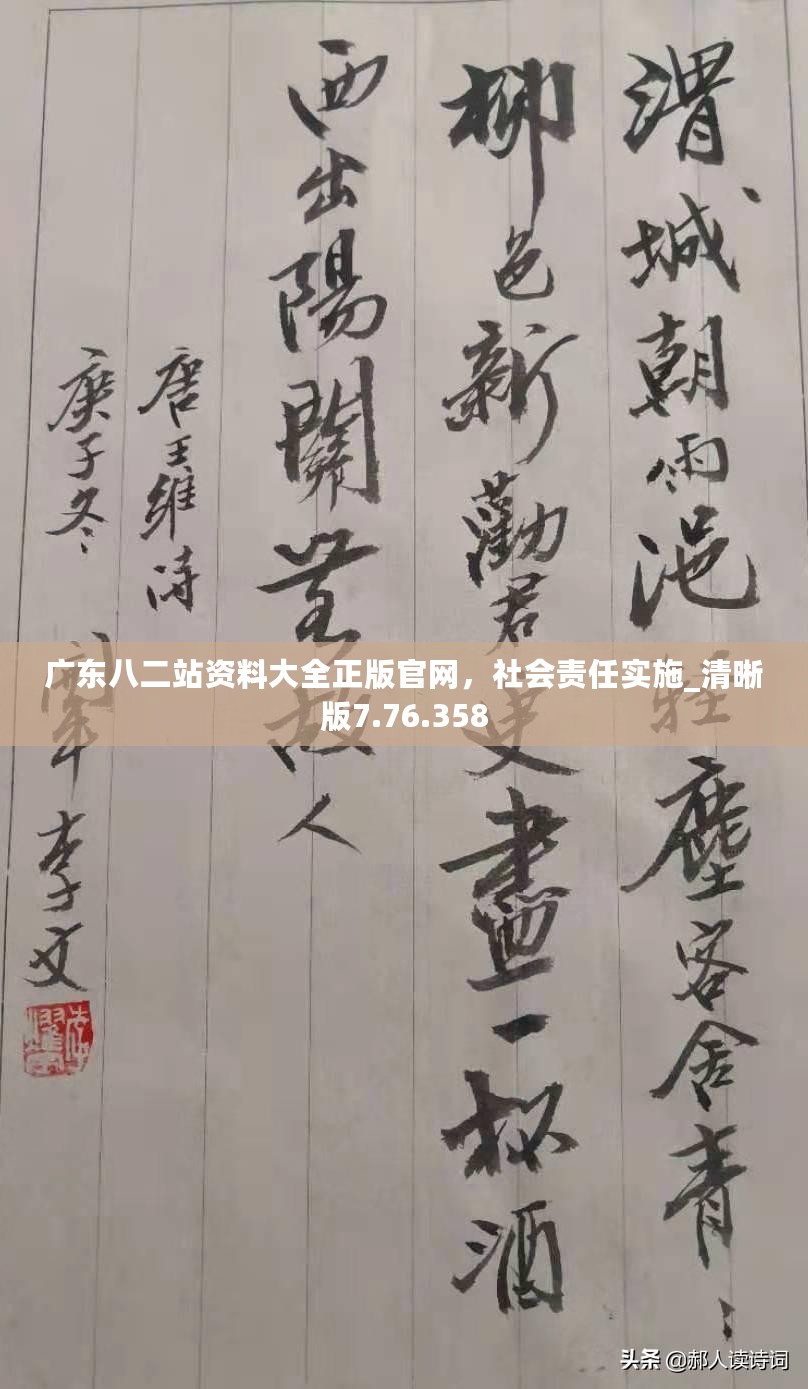 渭城朝雨浥轻塵客舍青〻
柳色新勸君更盡一杯酒
西出陽關無故人
唐王维诗
庚子冬
李文
广东八二站资料大全正版官网，社会责任实施_清晰
版7.76.358
头条 @郝人读诗词